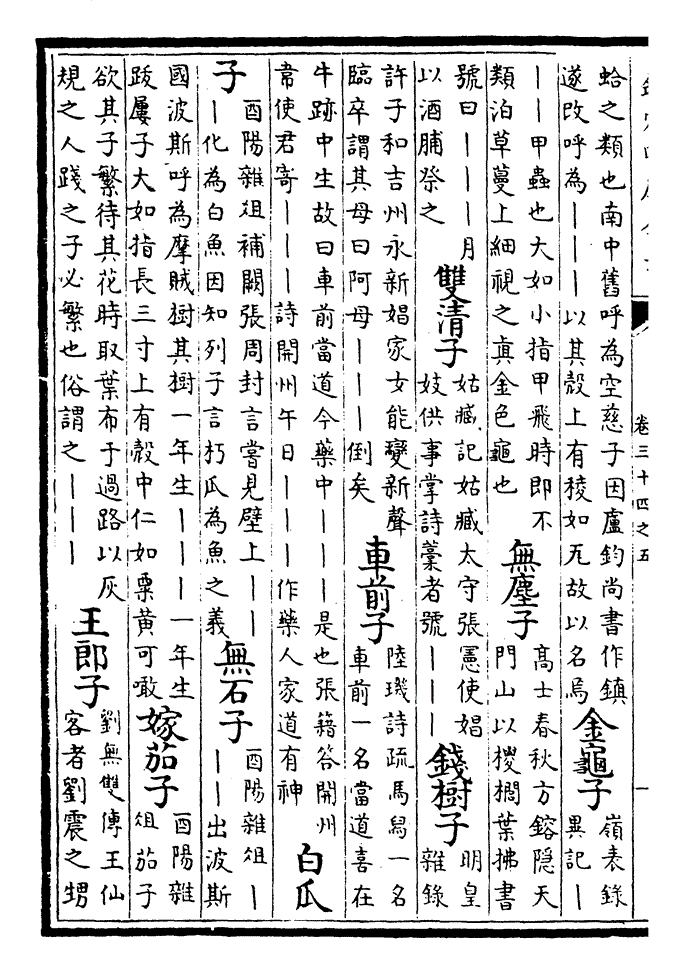 卷三十四之五
蛤之類也南中舊呼為空慈子因盧鈞尚書作鎮
遂改呼為｜｜｜以其殼上有稜如瓦故以名焉
金龜子
嶺表錄
異記｜
｜｜甲蟲也大如小指甲飛時即不
類泊草蔓上細視之真金色龜也
無塵子
高士春秋方鎔隱天
門山以椶櫚葉拂書
號曰｜｜｜月
以酒脯祭之
雙清子
姑臧記姑臧太守張憲使娼
妓供事掌詩藁者號｜｜｜
錢樹子
明皇
雜錄
許子和吉州永新娼家女能變新聲
臨卒謂其母曰阿母｜｜｜倒矣
車前子
陸璣詩疏馬舄一名
車前一名當道喜在
牛跡中生故曰車前當道今藥中｜｜｜是也張籍答開州
常使君寄｜｜｜詩開州午日｜｜｜作藥人家道有神
白瓜
子
酉陽雜俎補闕張周封言嘗見壁上｜｜
｜化為白魚因知列子言朽瓜為魚之義
無石子
酉陽雜俎｜
｜｜出波斯
國波斯呼為摩賊樹其樹一年生｜｜｜一年生
跋屢子大如指長三寸上有殼中仁如栗黃可噉
嫁茄子
酉陽雜
俎茄子
欲其子繁待其花時取葉布于過路以灰
規之人踐之子必繁也俗謂之｜｜｜
王郎子
劉無雙傳王仙
客者劉震之甥